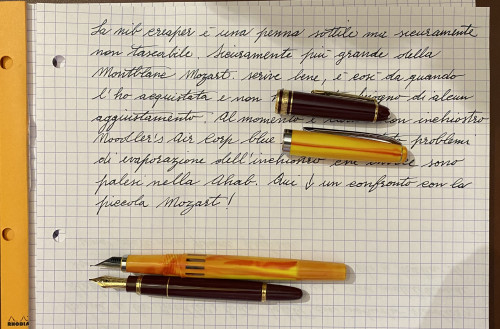 La nib creaper è una penna sottile ma sicuramente
non tascabile. Sicuramente più grande della
Montblanc Mozart. Serve bene, è così da quando
l'ho acquistata e non bisogno di alcun
aggiustamento. Al momento con inchiostro
Noodler's Air Corp blue problemi
di evaporazione dell'inchiostro che invece sono
palesi nella Ahab. Qui un confronto con la
piccola Mozart!
RHODIA